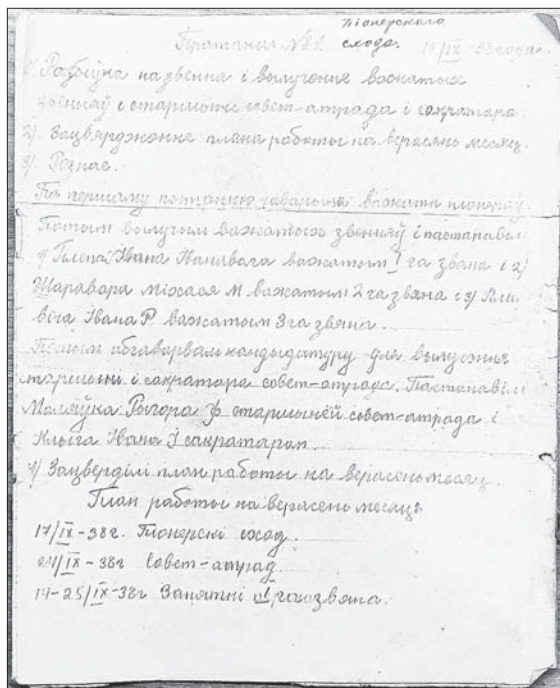 Піонерскаго
Пратакол № 1. схода. 17/IX-38 года.
1) Разбіўка на звенна і вылучение важатых
звенняў і старшыні совет-атрада і сакратара.
2) Зацверджэнне плана работы на верасень месяц.
3) Рознае.
Па першаму пытанню гаварыла важата піонераў.
Потым вылучым важатых звенняў і пастанавілі
1) Івана Іванавага важатым 1 га звяна і 2)
Шаравара Міхася М важатым 2 га звяна і 3)
Івана Р важатым 3 га звяна.
Потым абгаварвалі кандыдатуру для вылучэння
старшыні і сакратара совет-атрада. Пастанавілі
Рыгора старшынёй совет-атрада і
Клыга Івана І сакратаром.
Зацвердзілі план работы на верасень месяц.
План работы на верасень месяц
17/IX-38г. Піонерскі сход.
24/IX-38г Совет-атрад.
14-25/IX-38г Заняткі звяна.